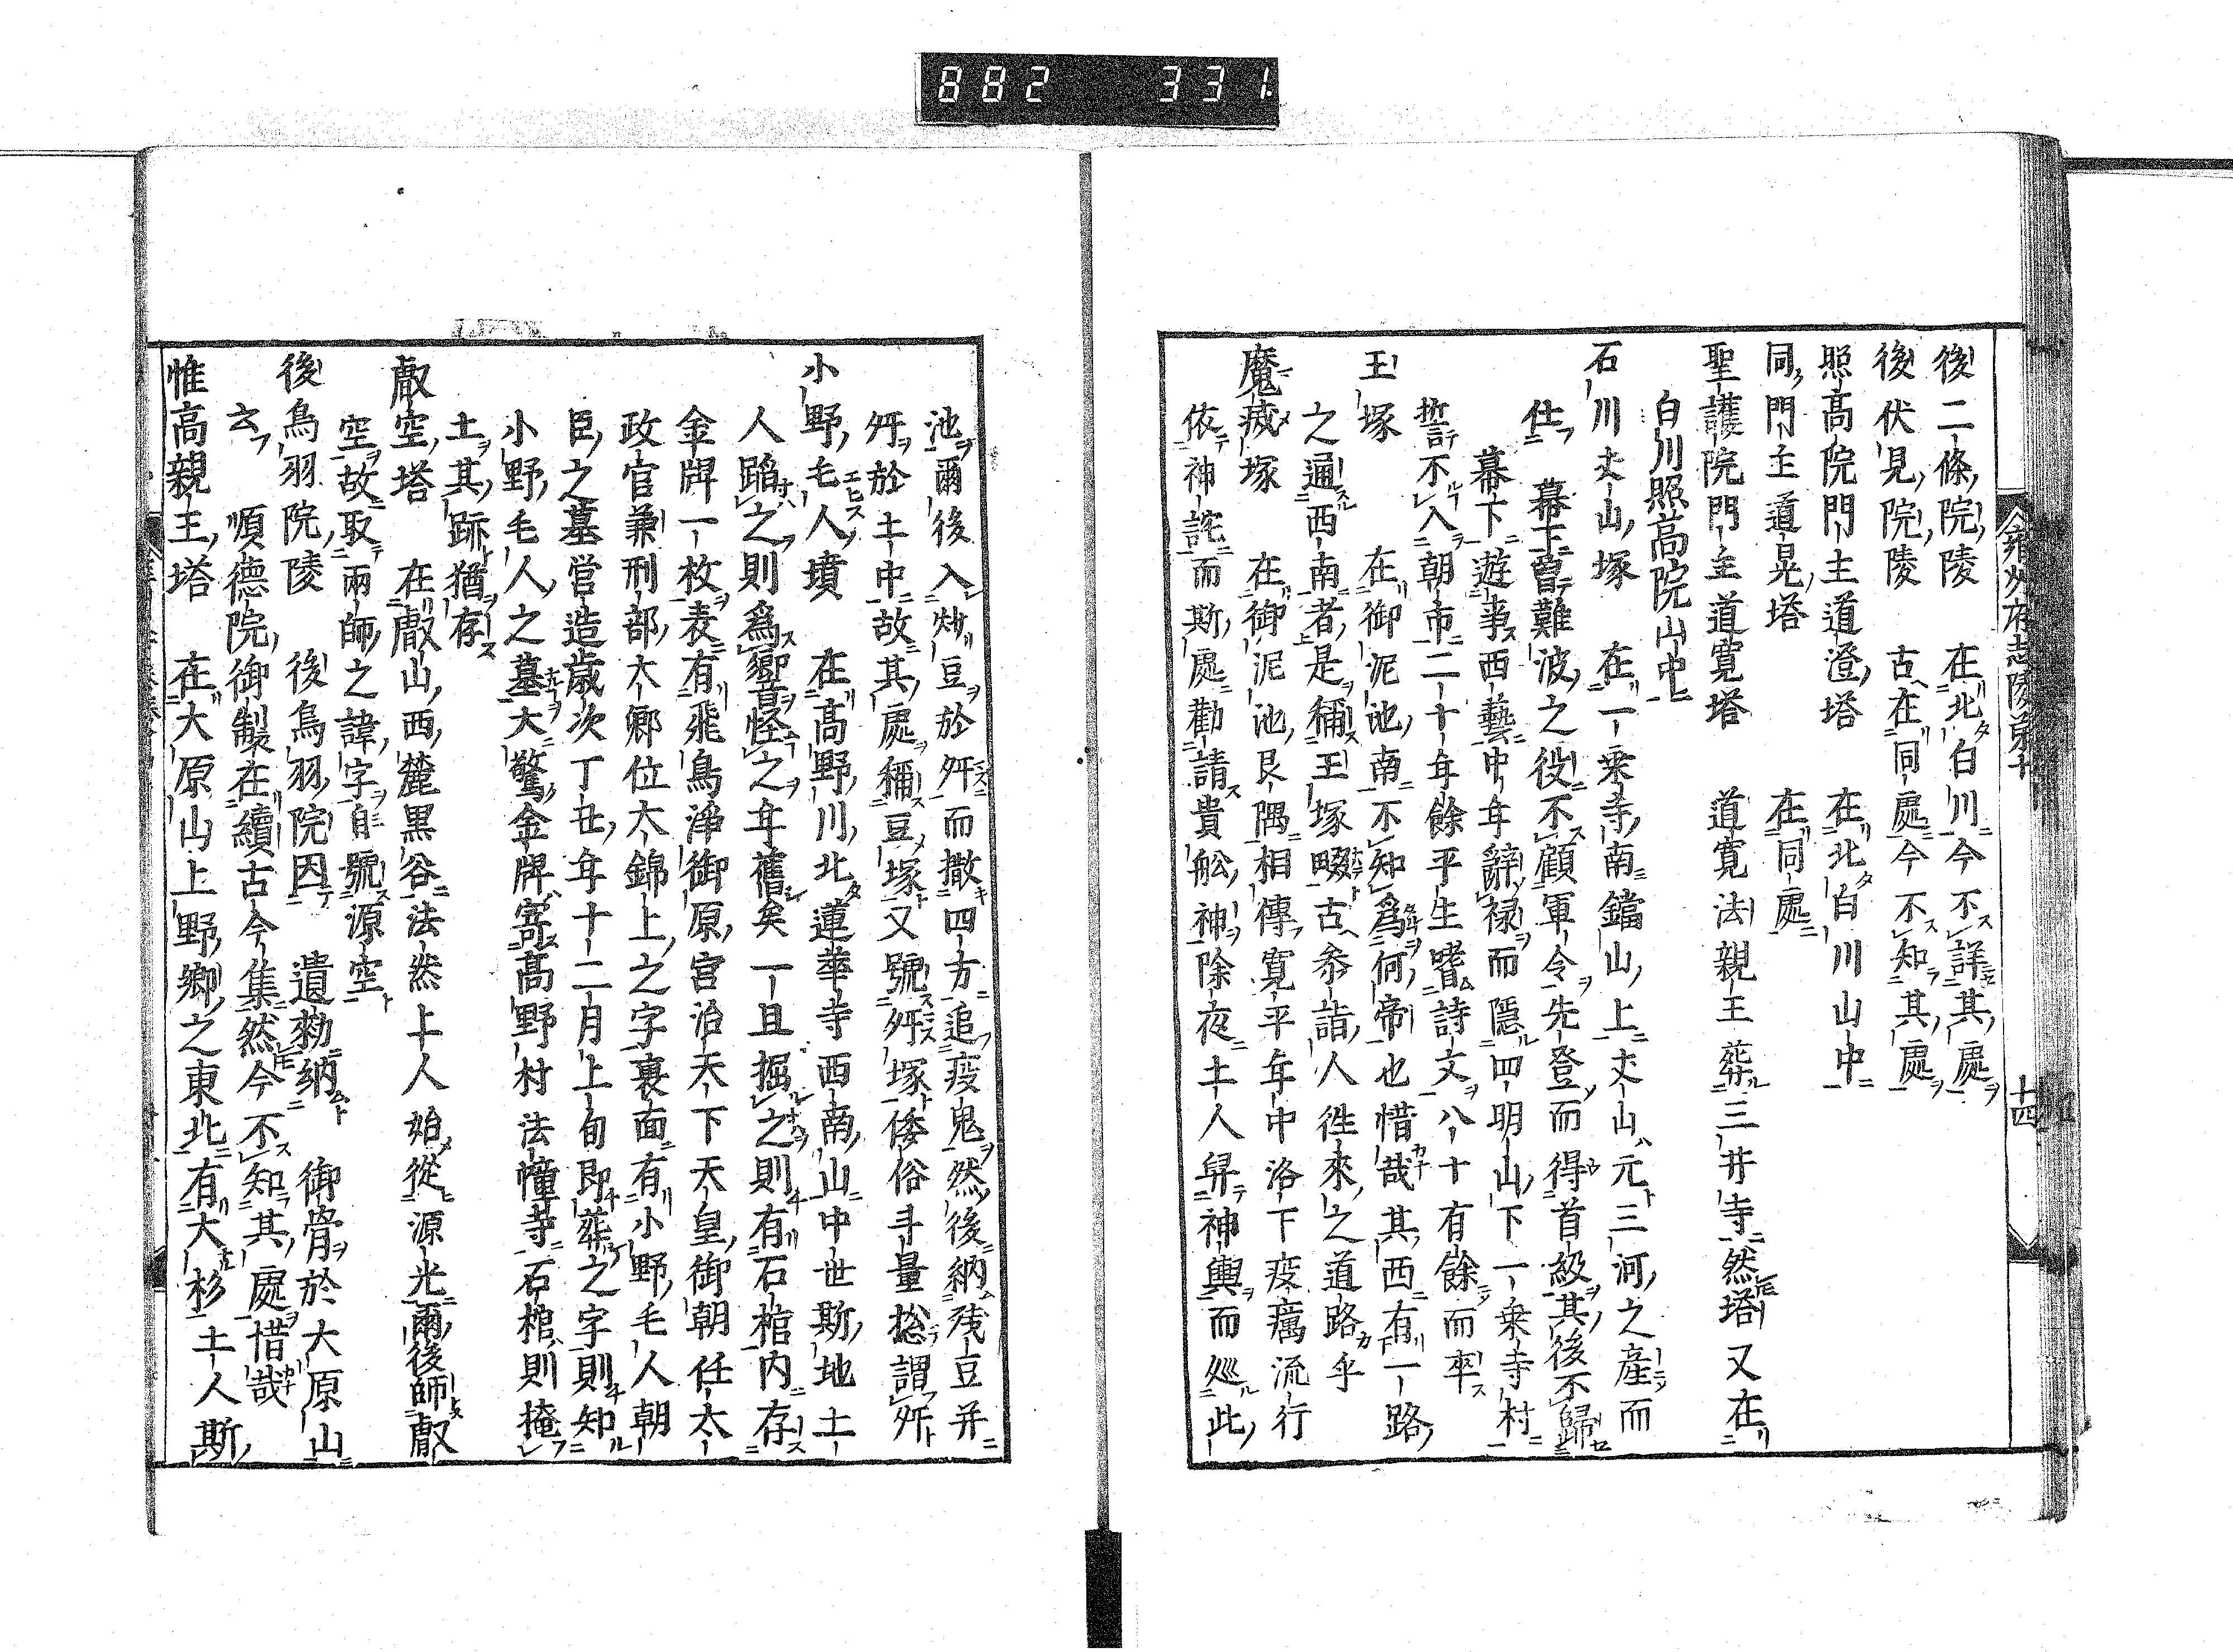 882 331
雍州府志陵第十 十四
後二條院陵 在北白川今不詳其處
後伏見院陵 古在同處今不知其處
照高院門主道澄塔 在北白川山中
同門主道晃塔 在同處
聖護院門主道寛塔 道寛法親王葬三井寺然塔又在
白川照高院山中
石川丈山塚 在一乗寺南鐺山上丈山元三河之産而
仕 幕下曽難波之役不顧軍令先登而得首級其後不歸
幕下遊事西藝中年辭禄而隠四明山下一乗寺村
誓不入朝市二十年餘平生嗜詩文八十有餘而卒
王塚 在御泥池南不知爲何帝也惜哉其西有一路
之遍西南者是稱王塚畷古參詣人徃來之道路乎
魔滅塚 在御泥池艮隅相傳寛平年中洛下疫癘流行
依神詫而斯處勸請貴舩神除夜土人舁神輿而廵此
池爾後入炒豆於舛而撒四方追疫鬼然後納残豆并
舛於土中故其處稱豆塚又號舛塚倭俗斗量捴謂舛
小野毛人墳 在髙野川北蓮華寺西南山中世斯地土
人蹈之則爲響音怪之年舊矣一旦掘之則有石棺内存
金牌一枚表有飛鳥淨御原宮治天下天皇御朝任太
政官兼刑部大卿位大錦上之字裏面有小野毛人朝
臣之墓営造歳次丁丑年十二月上旬即葬之字則知
小野毛人之墓大驚金牌寄髙野村法幢寺石棺則掩
土其跡猶存
叡空塔 在叡山西麓黒谷法然上人始從源光爾後師叡
空故取兩師之諱字自號源空
後鳥羽院陵 後鳥羽院因 遺勅納 御骨於大原山
云 順徳院御製在續古今集然今不知其處惜哉
惟高親王塔 在大原山上野郷之東北有大杉土人斯